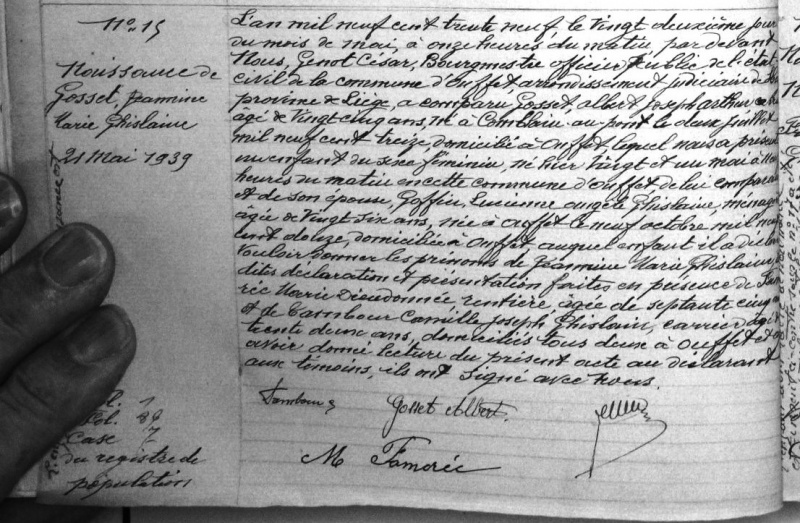 N°. 15
Naissance de
Gosset, Jeannine
Marie Ghislaine
21 Mai 1939
L'an mil neuf cent trente neuf, le Vingt deuxième jour
du mois de mai, à onze heures du matin, par devant
Nous, Genot César, Bourgmestre officier Public de l'état
civil de la commune d'Ouffet, arrondissement judiciaire de
province de Liège, a comparu, Gosset, Albert Joseph Arthur
agé de Vingt cinq ans, né à Comblain-au-pont le deux juillet
mil neuf cent treize, domicilié à Ouffet lequel nous a présen
un enfant du sexe féminin, né hier Vingt et un mai à
heures du matin en cette commune d'Ouffet, de lui compara
et de son épouse, Goffin, Lucienne Angèle Ghislaine, ménag
âgée de Vingt six ans, née à Ouffet le neuf octobre mil neu
cent douze, domiciliée à Ouffet auquel enfant il a déclar
Vouloir donner les prénoms de Jeannine Marie Ghislaine
dites déclaration et présentation faites en présence de Fam
rée Marie Dieudonnée, rentière, âgée de septante cinq
et de Tambour Camille Joseph Ghislain, carrier âgé
trente deux ans, domiciliés tous deux à Ouffet et
avoir donné lecture du présent acte au déclarant
aux témoins, ils ont signé avec nous.
Tambour
Gosset Albert.
M Famerée
Vol. 1
Fol. 89
Case 7
du registre de
population